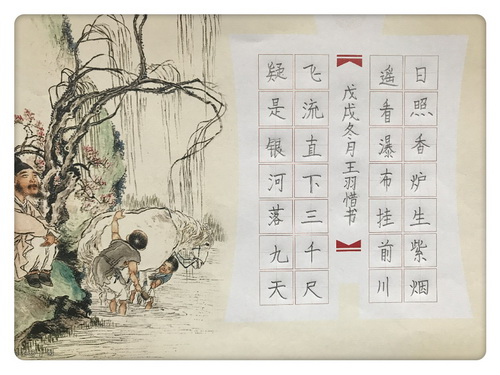 日照香炉生紫烟
遥看瀑布挂前川
戊戌冬月王羽惜书
飞流直下三千尺
疑是银河落九天